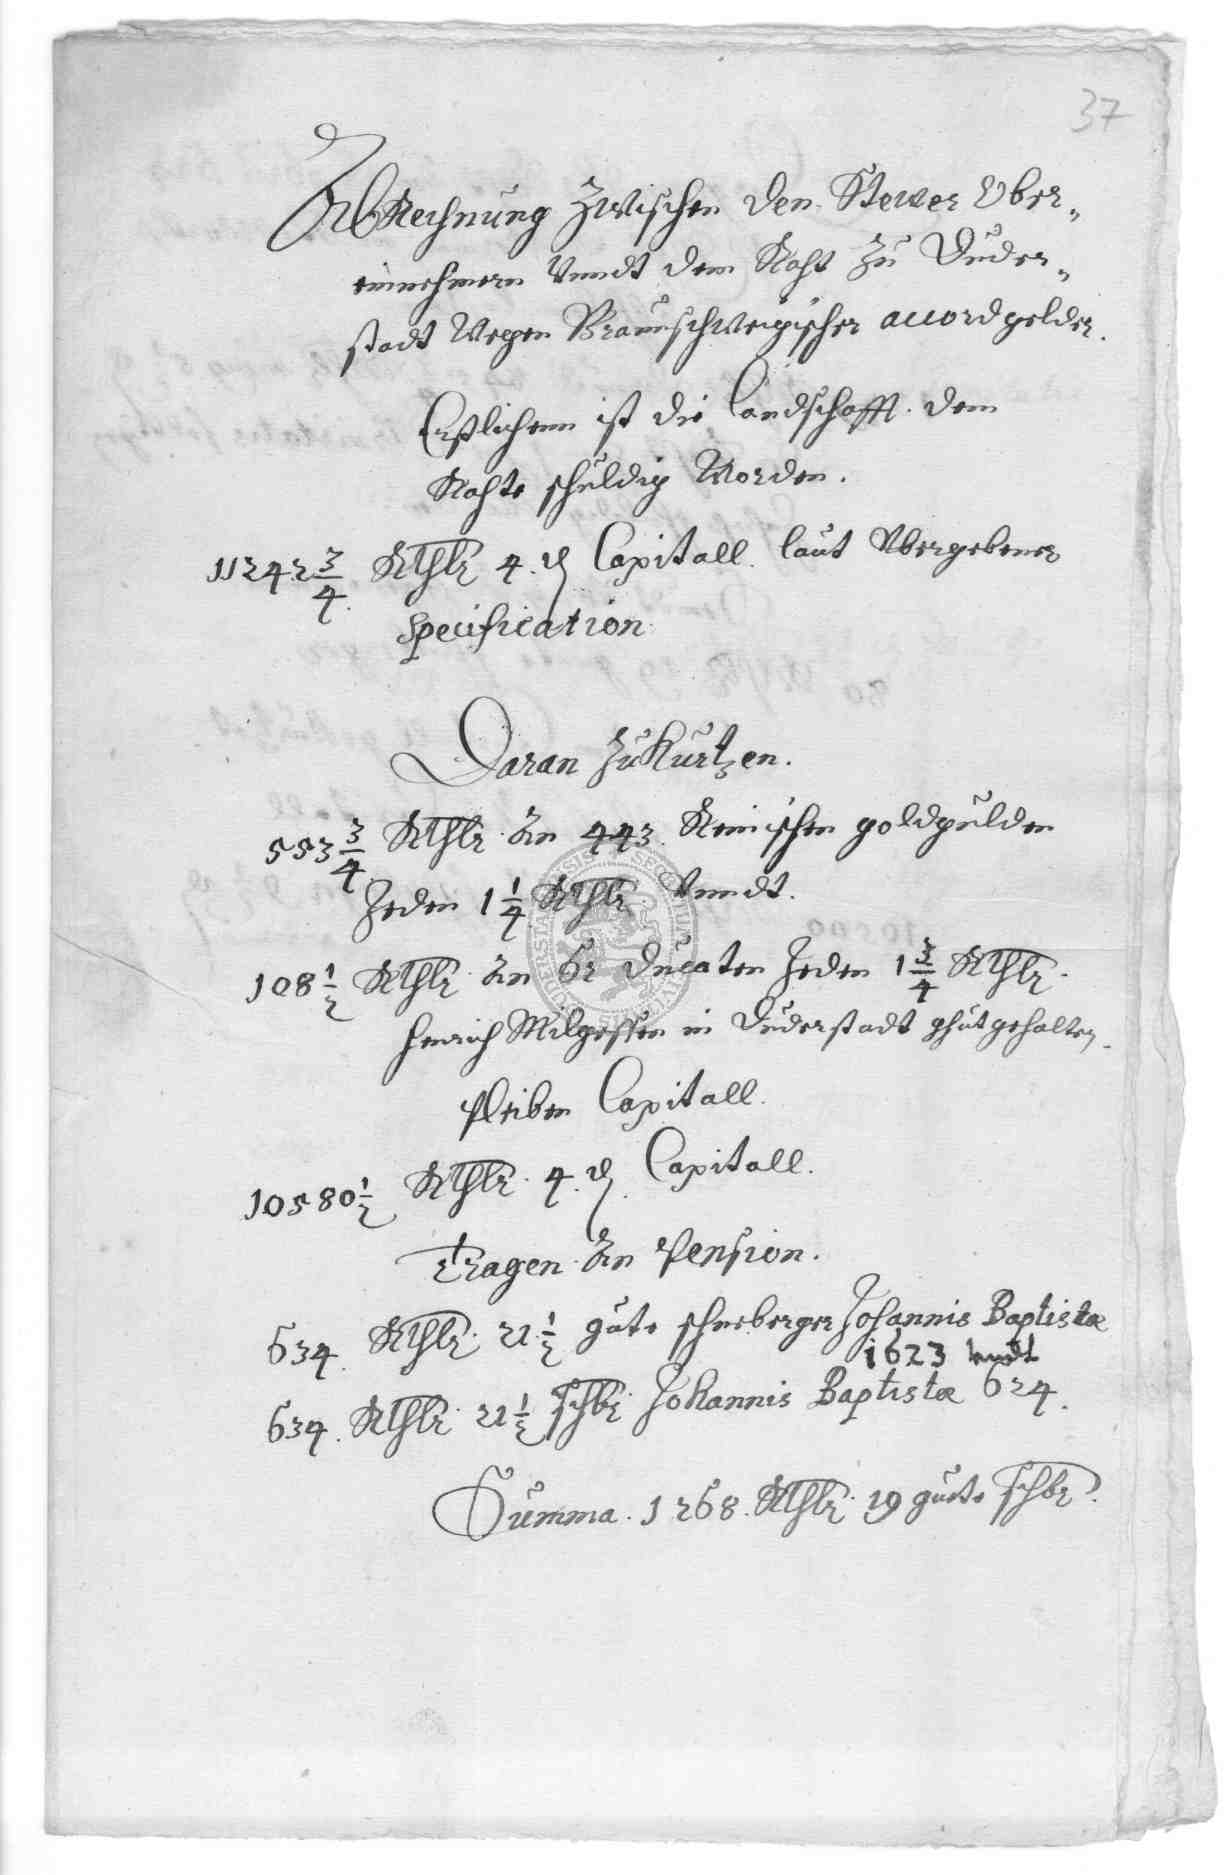 37
AbRechnung Zwischen den Stewer Vber„
einnehmern Vnndt dem Raht Zu Duder„
stadt Wegen Braunschweigischer accordgelder.
Erstlichenn ist die Landschafft dem
Rahte schuldig Worden.
11242 3/4 RThlr 4. ₰ Capitall laut Vbergebener
Specification
Daran Zu Kurtzen.
553 3/4 RThlr An 443. Reinischen goldgulden
Jeden 1 1/4 RThlr Vnndt.
108 1/2 RThlr An 62 Ducaten Jeden 1 3/4 RThlr.
Henrich Milgessen in Duderstadt ghutgehalten.
Pleiben Capitall.
10580 1/2 RThlr. 4. ₰ Capitall.
Tragen An Pension.
634. RThlr. 21 1/2 gute schneberger Johannis Baptistæ
1623 vndt
634. RThlr. 21 1/2 schbr Johannis Baptistæ 624.
Summa. 1268. RThlr. 19 guete schbr.